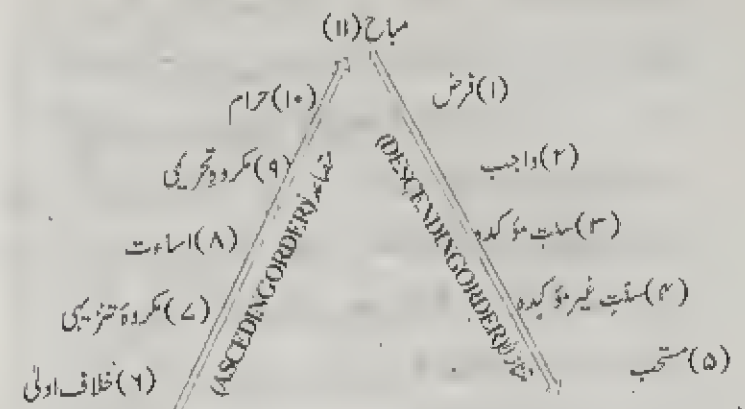 مباح (۱۱)
(۱) فرض
(۲) واجب
(۳) سنتِ مؤکدہ
(۴) سنتِ غیر مؤکدہ
(۵) مستحب
(DESCENDINGORDER)
(۱۰) حرام
(۹) مکروہِ تحریمی
(۸) اساءت
(۷) مکروہِ تنزیہی
(۶) خلافِ اولیٰ
(ASCEDINGORDER)